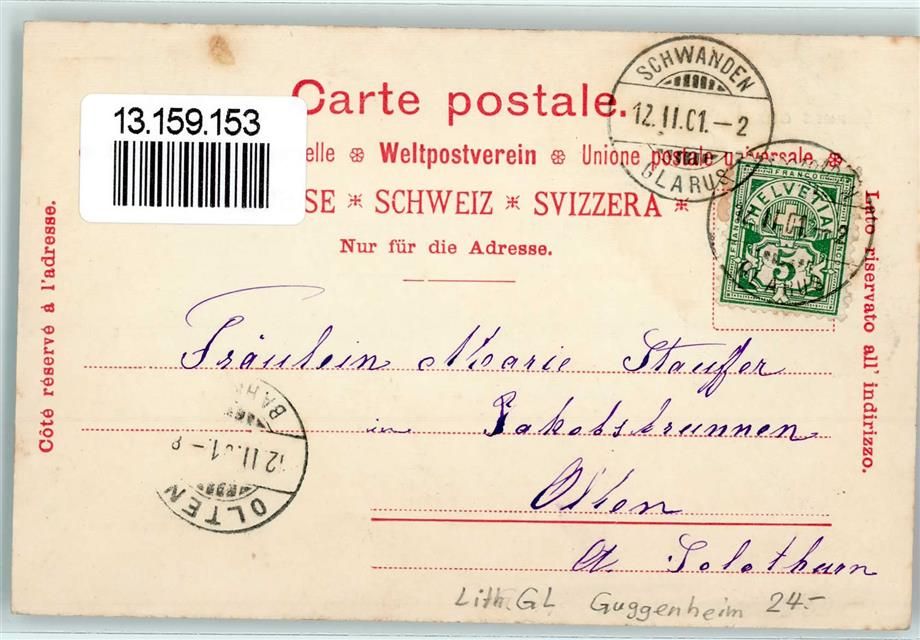 Carte postale.
13.159.153
elle ❊ Weltpostverein ❊ Unione postale universale ❊
SE * SCHWEIZ * SVIZZERA *
Nur für die Adresse.
Côté réservé à l'adresse.
Lato riservato all' indirizzo.
SCHWANDEN
12.II.01.-2
GLARUS
FRANCO
HELVETIA
5
GLARUS
Fräulein Marie Stauffer
in Jakobsbrunnen
Olten
Ct. Solothurn
BAHN
12.II.01.-8
OLTEN
Lith GL Guggenheim 24.-